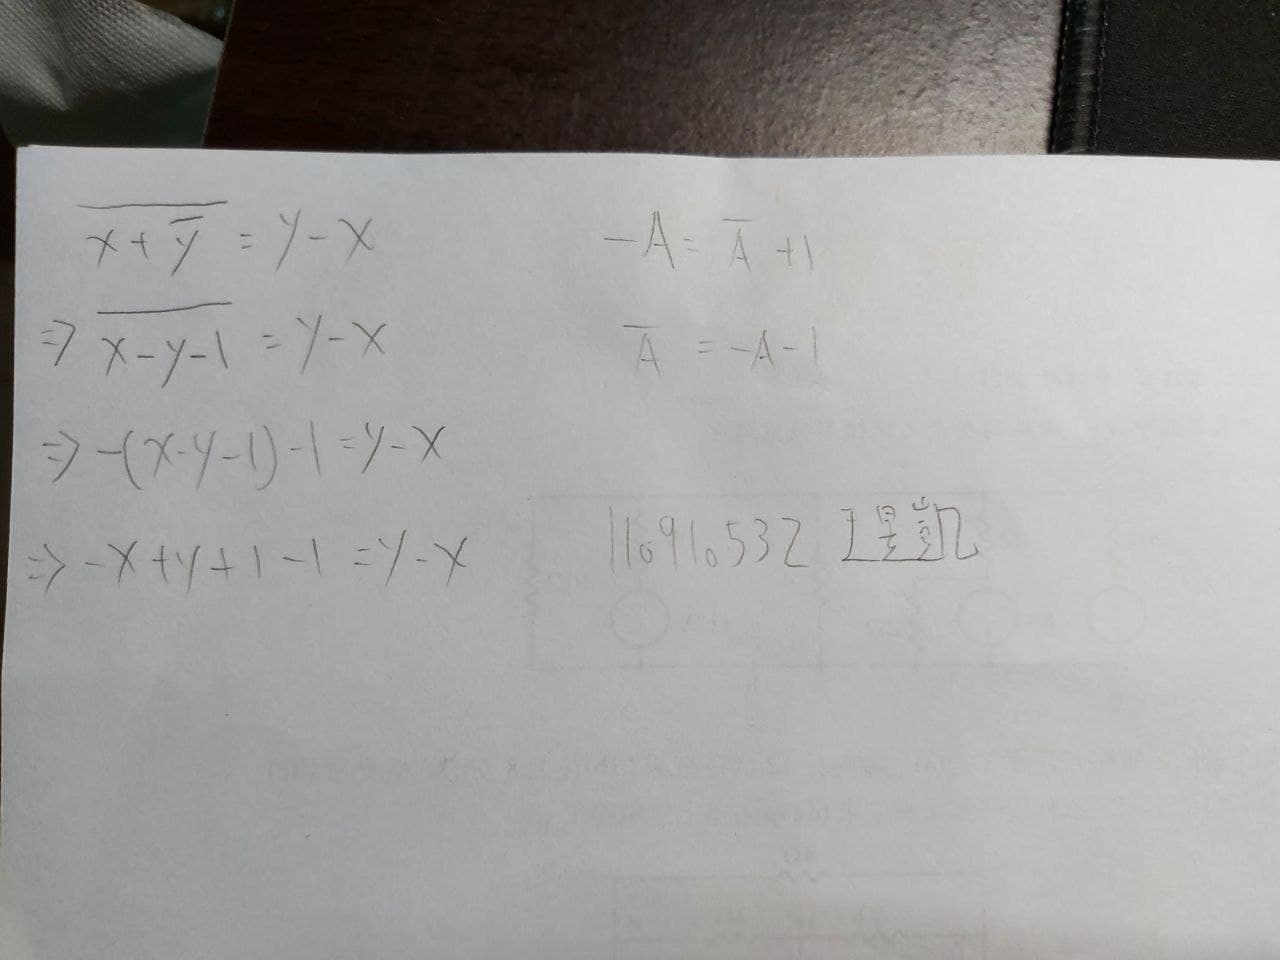 $\overline{x+\overline{y}} = y-x$
$\Rightarrow \overline{x-y-1} = y-x$
$\Rightarrow -(x-y-1)-1 = y-x$
$\Rightarrow -x+y+1-1 = y-x$
$-A = \overline{A}+1$
$\overline{A} = -A-1$
110910532 王 凱